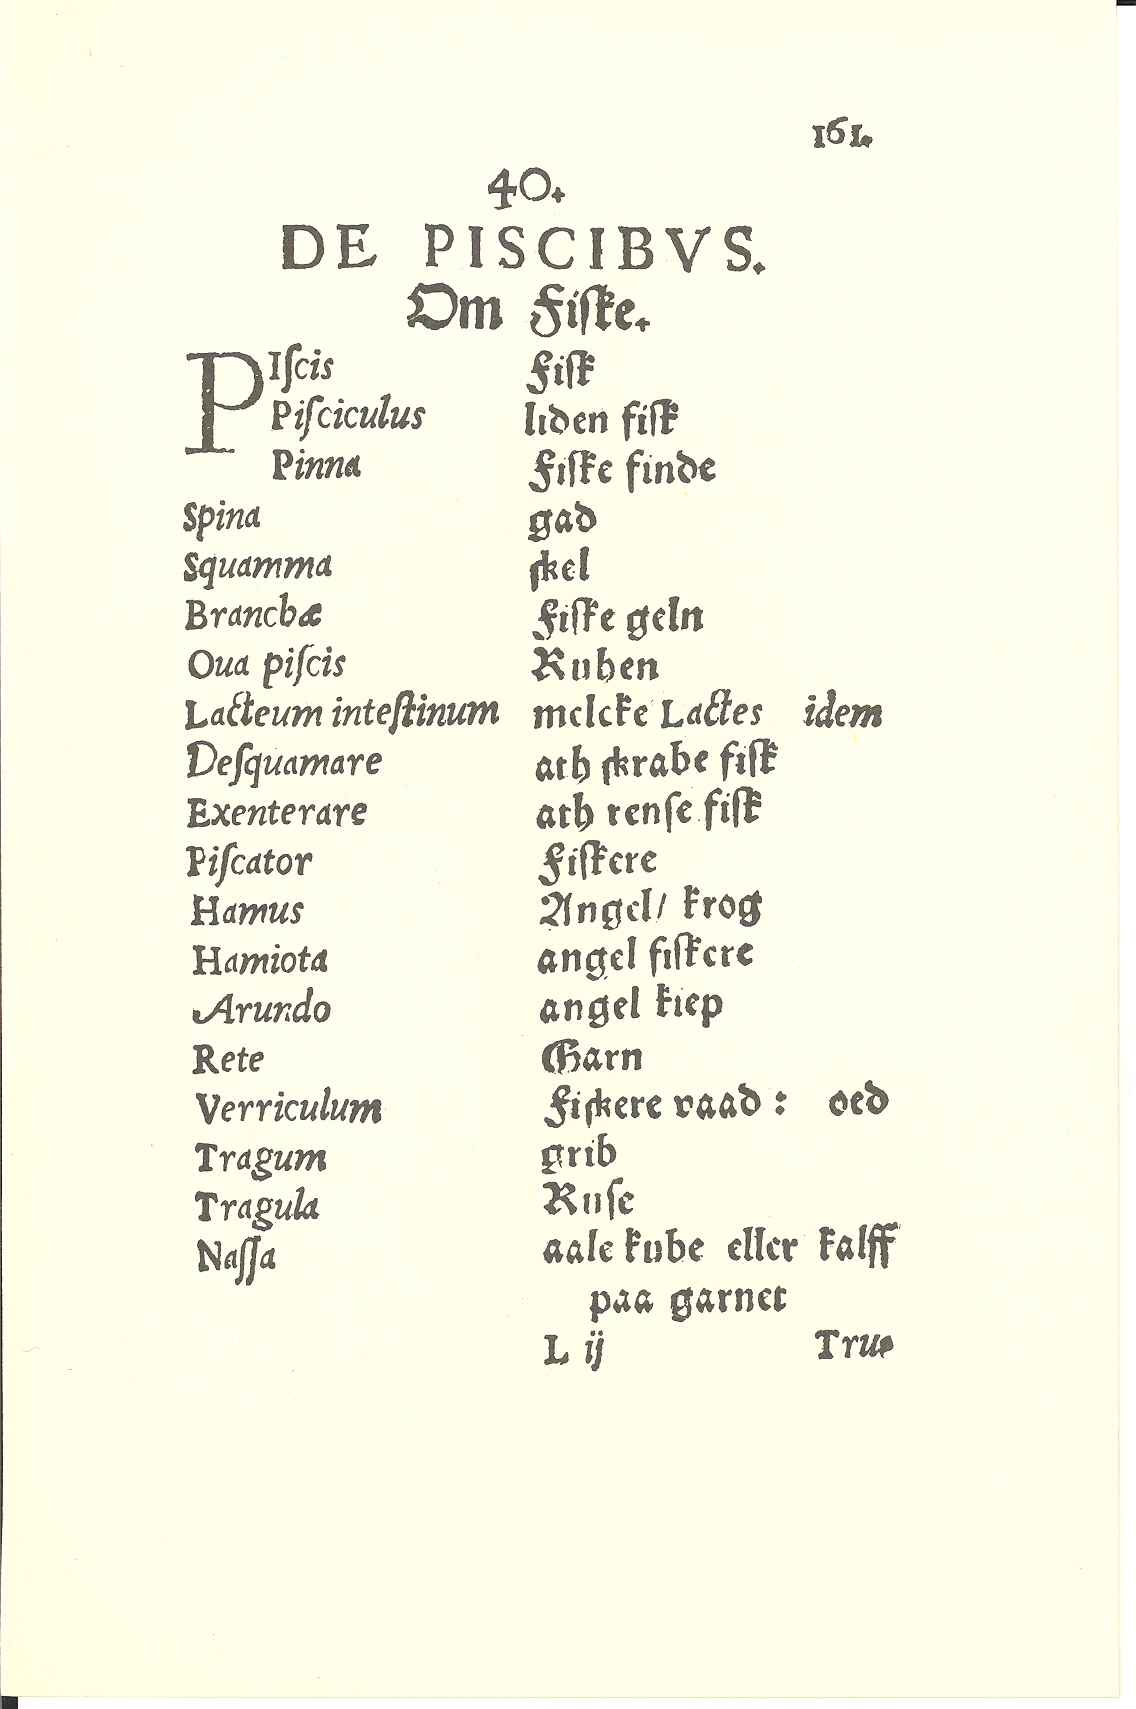 161.
40.
DE PISCIBVS.
Om Fiſke.
PIſcis Fiſk
Piſciculus liden fiſk
Pinna Fiſke finde
Spina gad
Squamma ſkel
Branchæ Fiſke geln
Oua piſcis Ruben
Lacteum inteſtinum melcke Lactes idem
Deſquamare ath ſkrabe fiſk
Exenterare ath renſe fiſk
Piſcator Fiſkere
Hamus Angel/ krog
Hamiota angel fiſkere
Arundo angel kiep
Rete Garn
Verriculum Fiſkere vaad : oed
Tragum grib
Tragula Ruſe
Naſſa aale kube eller kalff
paa garnet
L ij Tru⸗